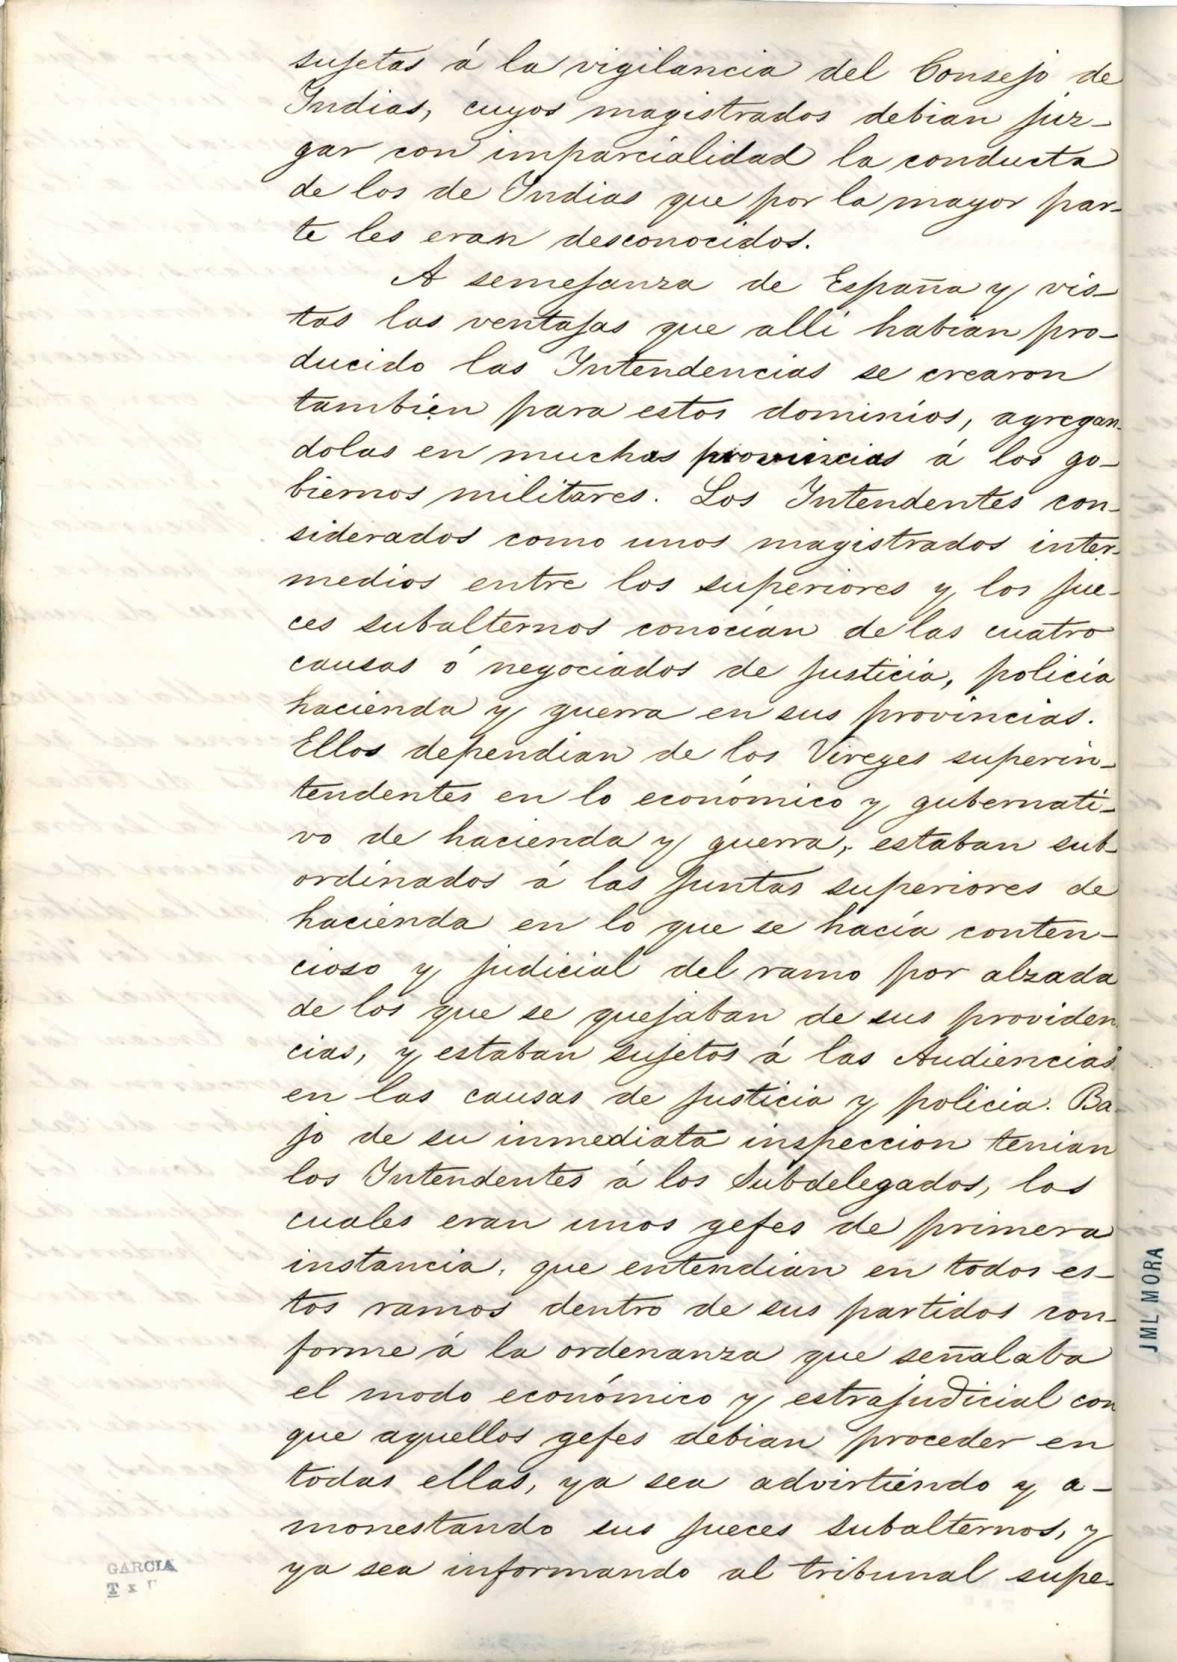 sujetas á la vigilancia del Consejo de
Indias, cuyos magistrados debian juz-
gar con imparcialidad la conducta
de los de Indias que por la mayor par-
te les eran desconocidos.
A semejanza de España y vis-
tas las ventajas que allí habían pro-
ducido las Intendencias se crearon
también para estos dominios, agregan-
dolas en muchas provincias á los go-
biernos militares. Los Intendentes con-
siderados como unos magistrados inter-
medios entre los superiores y los jue-
ces subalternos conocían de las cuatro
causas ó negociados de justicia, policía
hacienda y guerra en sus provincias.
Ellos dependian de los Vireyes superin-
tendentes en lo económico y gubernati-
vo de hacienda y guerra, estaban sub-
ordinados á las juntas superiores de
hacienda en lo que se hacía conten-
cioso y judicial del ramo por alzada
de los que se quejaban de sus providen-
cias, y estaban sujetos á las Audiencias
en las causas de justicia y policia. Ba-
jo de su inmediata inspeccion tenian
los Intendentes á los Subdelegados, los
cuales eran unos gefes de primera
instancia, que entendian en todos es-
tos ramos dentro de sus partidos con-
forme á la ordenanza que señalaba
el modo económico y estrajudicial con
que aquellos gefes debian proceder en
todas ellas, ya sea advirtiendo y a-
monestando sus jueces subalternos, y
ya sea informando al tribunal supe-
JML MORA
GARCIA